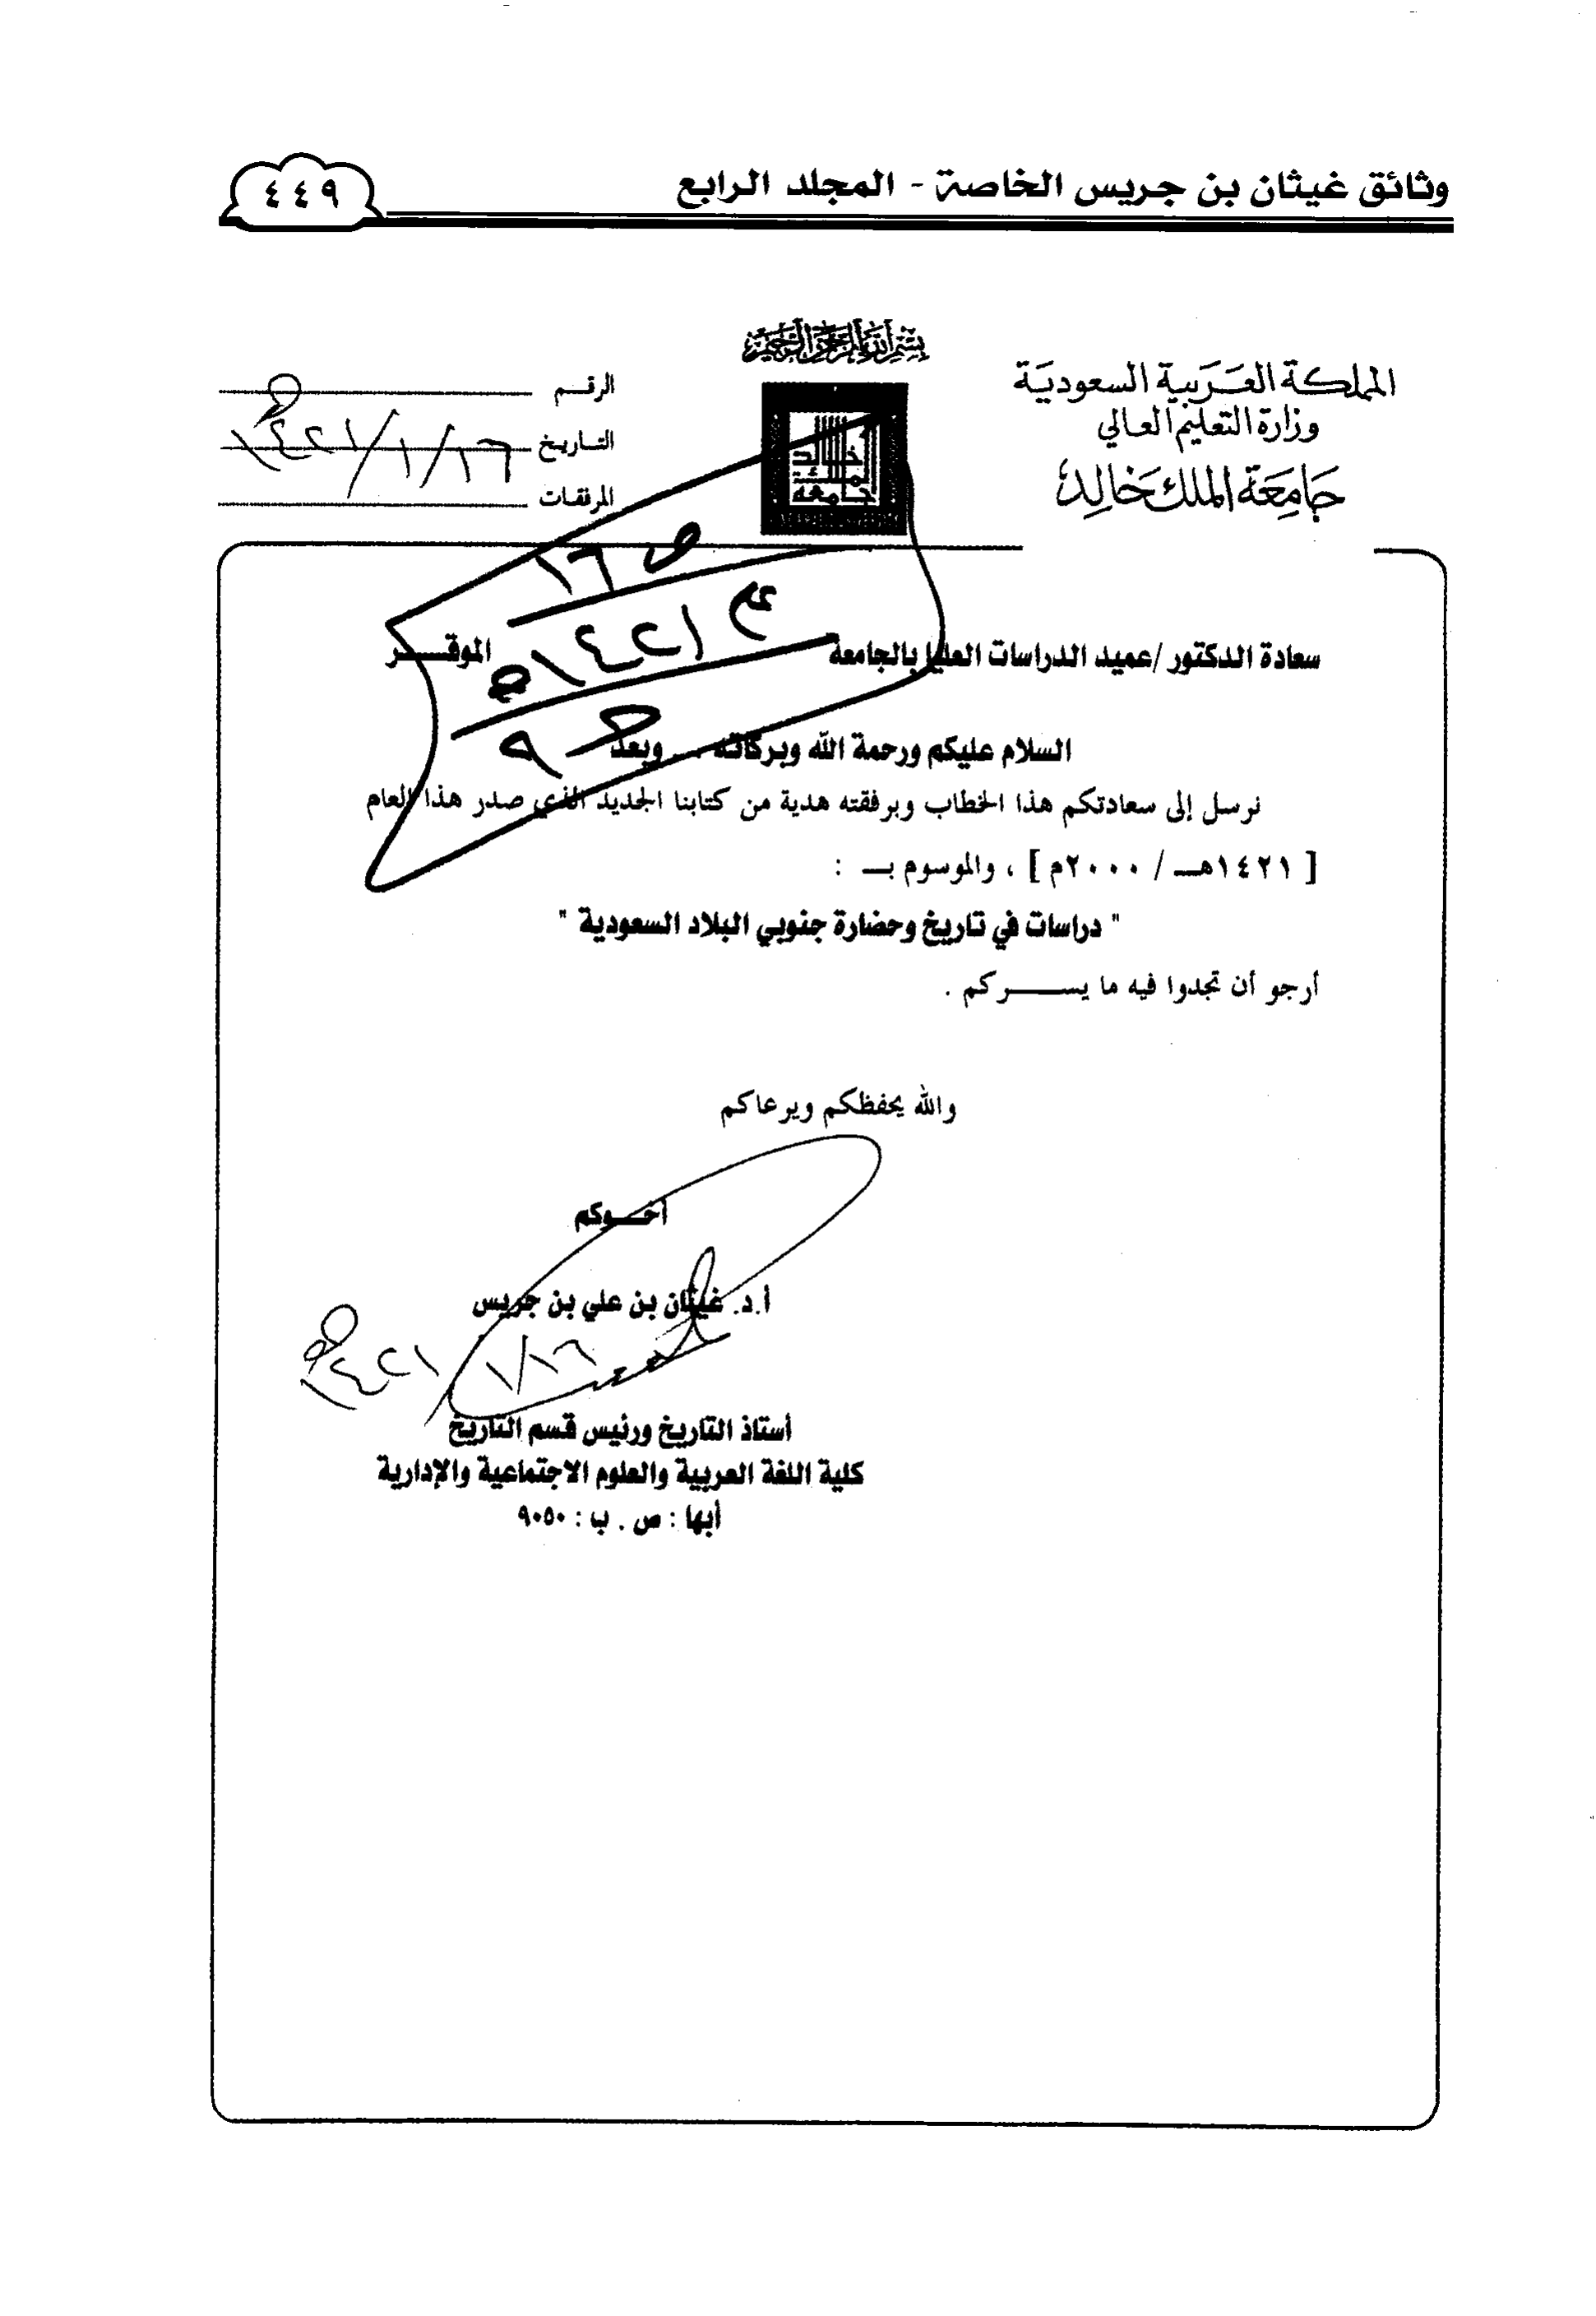 وثائق غيثان بن جريس الخاصة - المجلد الرابع
٤٤٩
بسم الله الرحمن الرحيم
المملكة العربية السعودية
وزارة التعليم العالي
جامعة الملك خالد
خالد
الملك
جامعة
الرقم
التاريخ ١٤٢١/١/١٦هـ
المرفقات
ص ١٦
١٤٢١هـ
سعادة الدكتور /عميد الدراسات العليا بالجامعة الموقـــر
السلام عليكم ورحمة الله وبركاته ... وبعد
نرسل إلى سعادتكم هذا الخطاب وبرفقته هدية من كتابنا الجديد الذي صدر هذا العام
[ ١٤٢١هـــ / ٢٠٠٠م ] ، والموسوم بـــ :
" دراسات في تاريخ وحضارة جنوبي البلاد السعودية "
أرجو أن تجدوا فيه ما يســـــركم .
والله يحفظكم ويرعاكم
أخـــوكم
أ.د. غيثان بن علي بن جريس
١/١٦/ ١٤٢١هـ
أستاذ التاريخ ورئيس قسم التاريخ
كلية اللغة العربية والعلوم الاجتماعية والإدارية
أبها : ص . ب : ٩٠٥٠